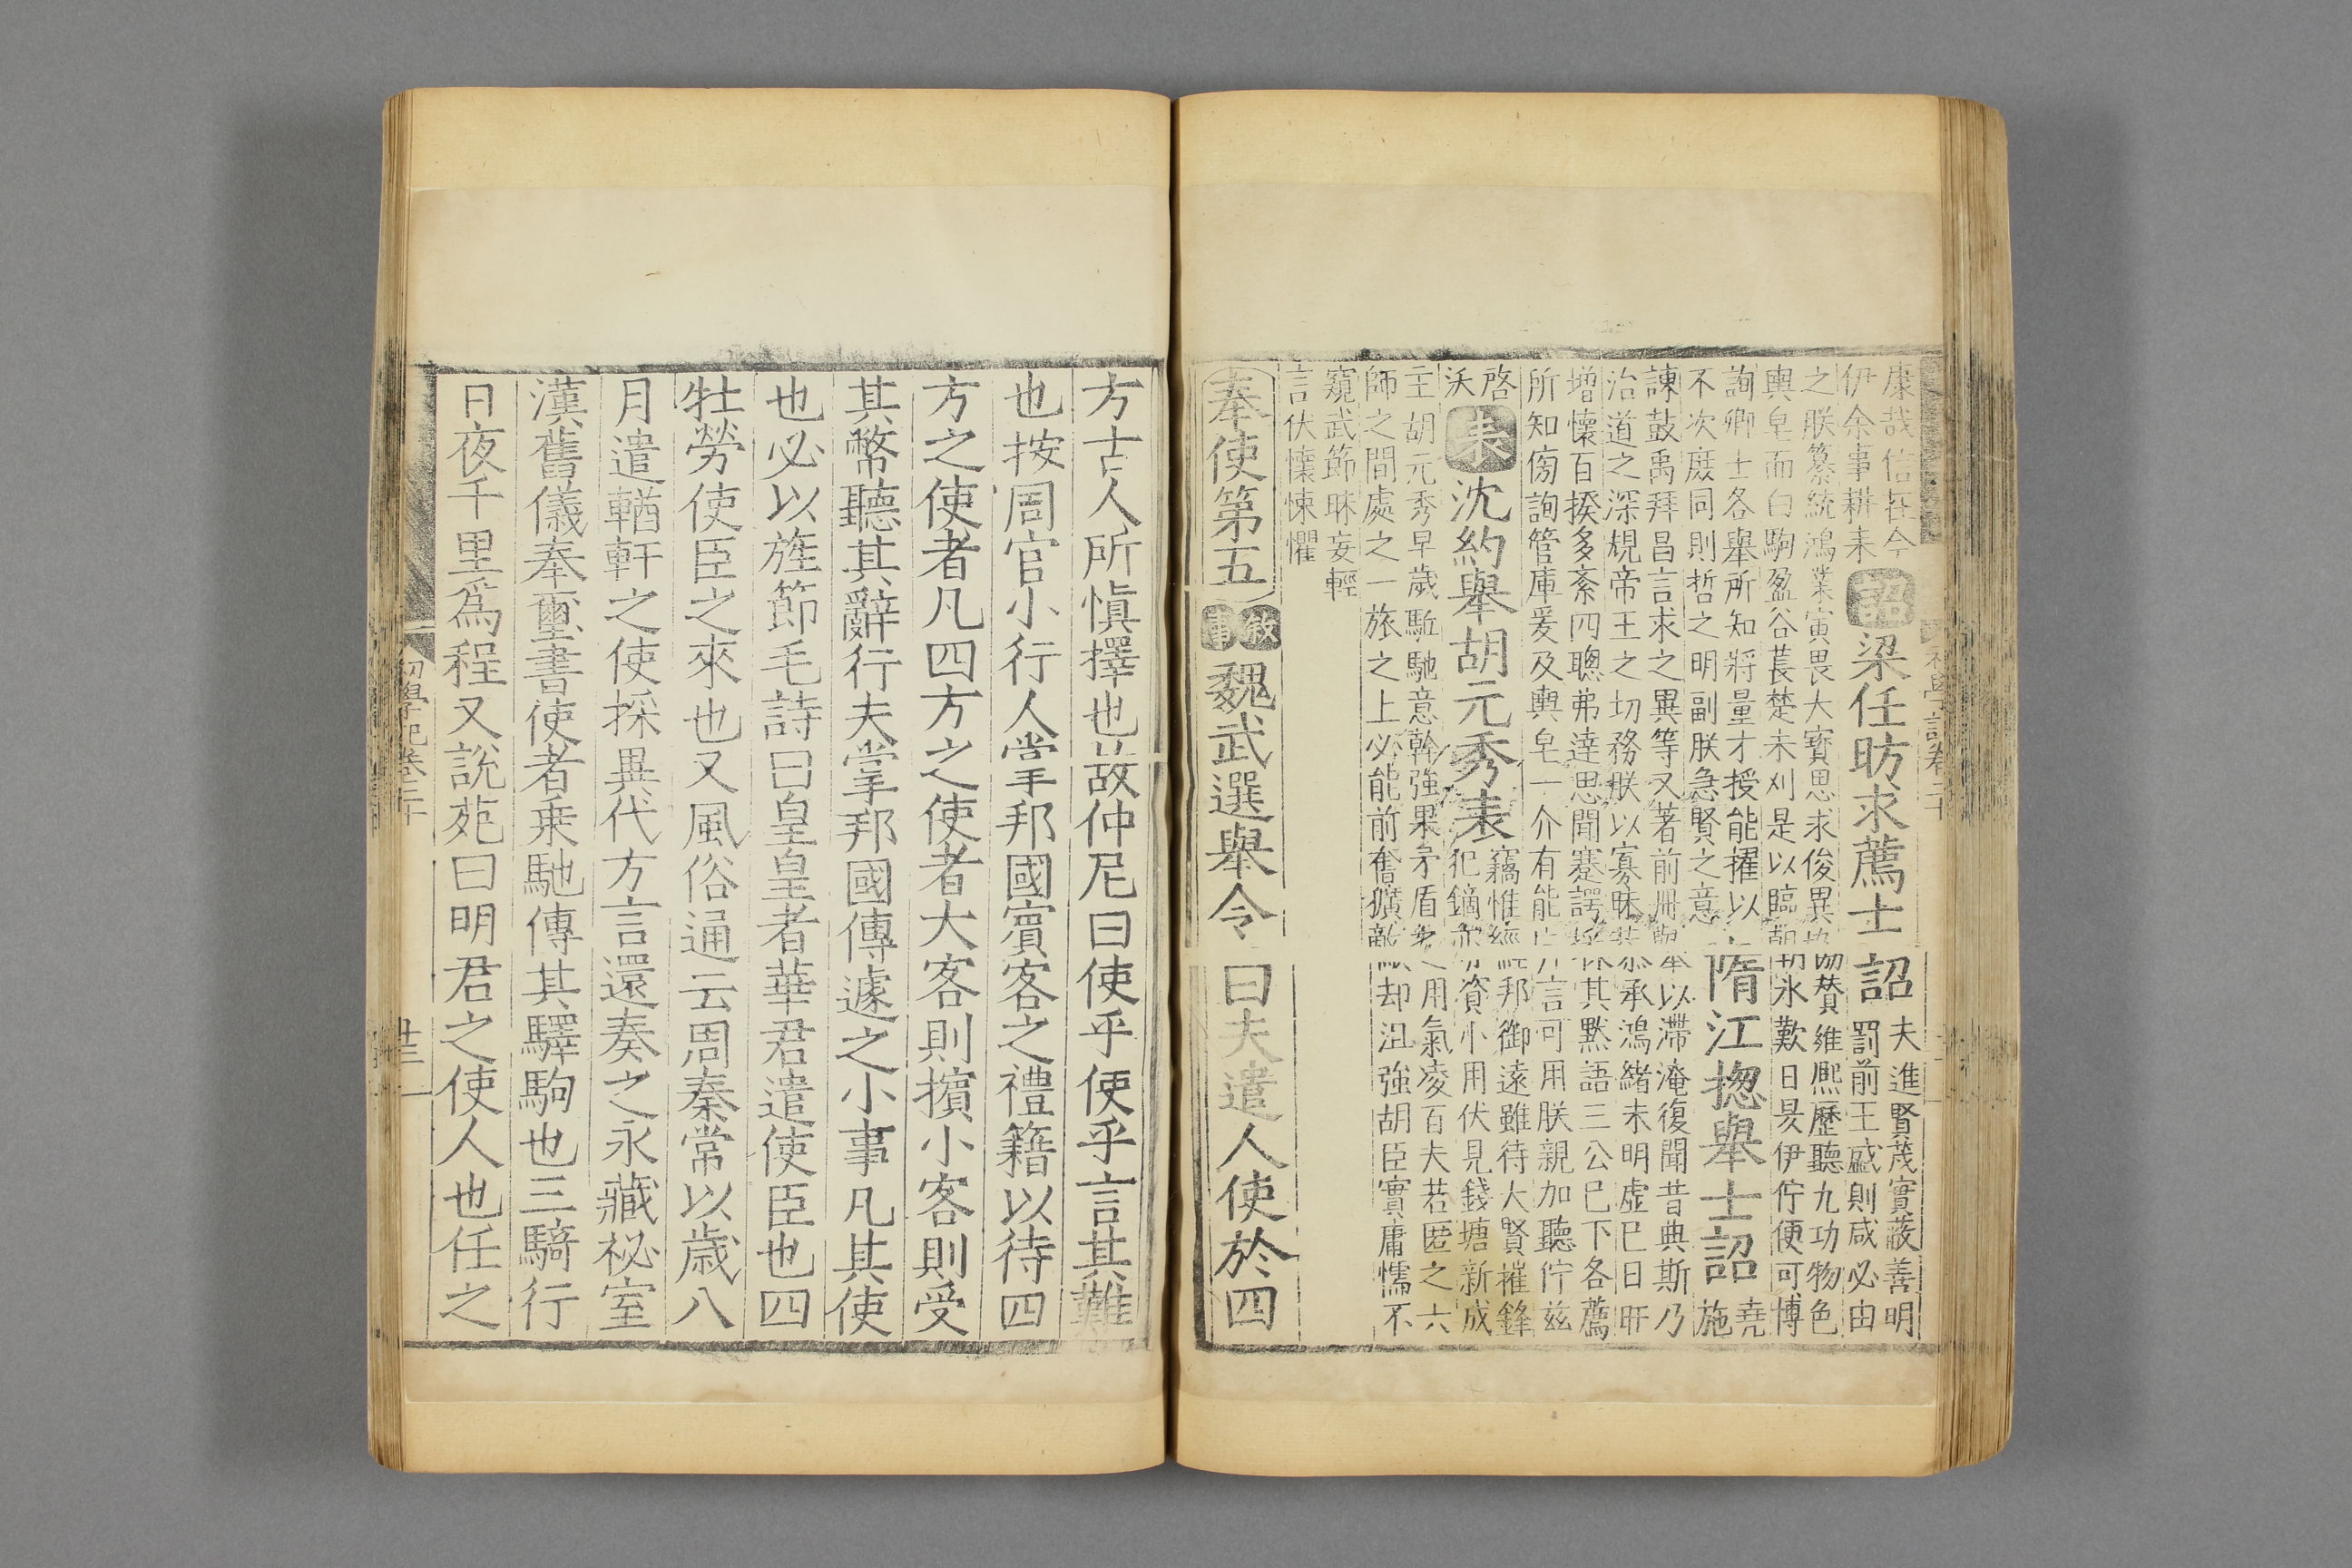 康哉信在今
伊余事耕耒
詔 梁任昉求薦士詔
夫進賢茂實蔽善明
罰前王盛則咸必由
之朕纂統鴻業寅畏大寶思求俊異協贊維熙歷聽九功物色
輿皂而白駒盈谷萇楚未刈是以臨朝永歎日昃伊佇便可博
詢卿士各舉所知將量才授能擢以
不次庶同則哲之明副朕急賢之意
隋江揔舉士詔
堯
施
諫鼓禹拜昌言求之異等又著前冊舉以滯淹復聞昔典斯乃
治道之深規帝王之切務朕以寡昧恭承鴻緒未明虛巳日旰
增懷百揆多紊四聰弗達思聞蹇諤採其黙語三公巳下各薦
所知傍詢管庫爰及輿皂一介有能片言可用朕親加聽佇兹
啓
沃
表 沈約舉胡元秀表
竊惟經邦御遠雖待大賢摧鋒
犯鏑亦資小用伏見錢塘新成
王胡元秀早歲駈馳意幹強果矛盾之用氣凌百夫若匿之六
師之間處之一旅之上必能前奮獷敵却沮強胡臣實庸懦不
窺武節昧妄輕
言伏懷悚懼
奉使第五 敘事 魏武選舉令曰夫遣人使於四
方古人所慎擇也故仲尼曰使乎使乎言其難
也按周官小行人掌邦國賓客之禮籍以待四
方之使者凡四方之使者大客則擯小客則受
其幣聽其辭行夫掌邦國傳遽之小事凡其使
也必以旌節毛詩曰皇皇者華君遣使臣也四
牡勞使臣之來也又風俗通云周秦常以歲八
月遣輶軒之使採異代方言還奏之永藏祕室
漢舊儀奉璽書使者乗馳傳其驛駒也三騎行
日夜千里爲程又說苑曰明君之使人也任之
初學記卷二十
廿三